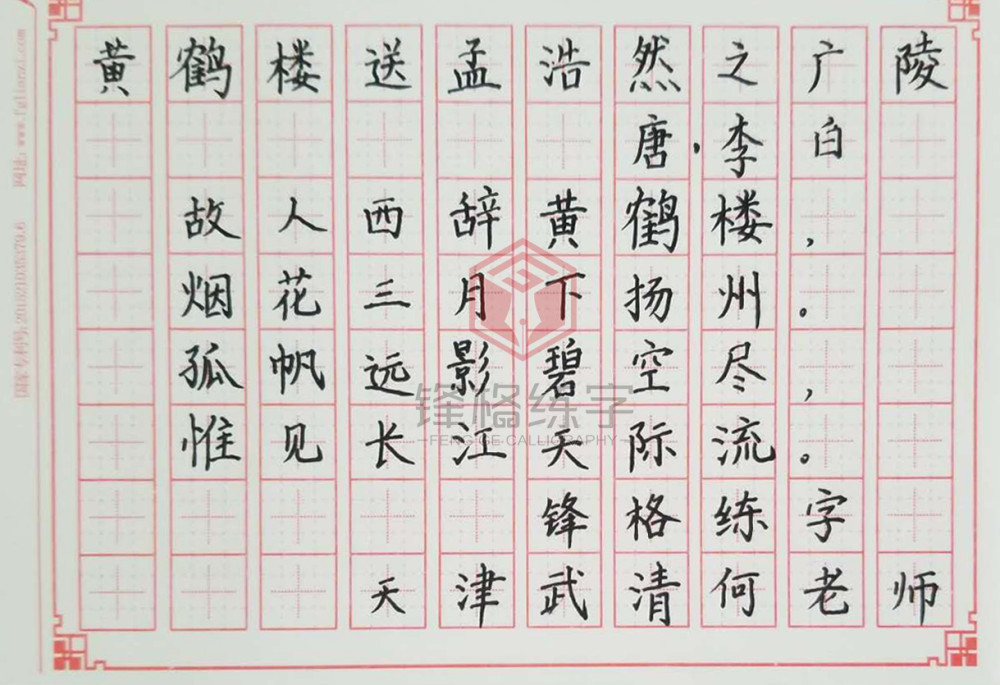 黄鹤楼送孟浩然之广陵
唐·李白
故人西辞黄鹤楼，
烟花三月下扬州。
孤帆远影碧空尽，
惟见长江天际流。
锋格练字
天津武清何老师
锋格练字
FENG GE CALLIGRAPHY